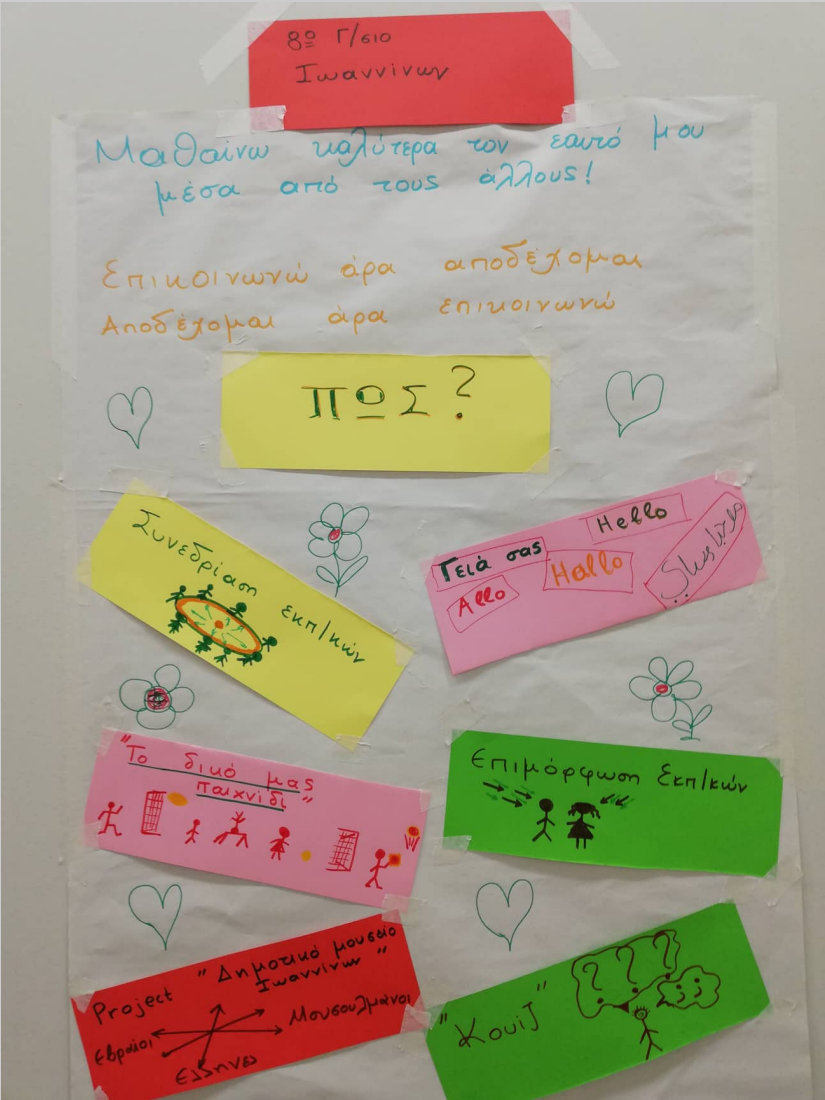 8ο Γ/σιο
Ιωαννίνων
Μαθαίνω καλύτερα τον εαυτό μου
μέσα από τους άλλους!
Επικοινωνώ άρα αποδέχομαι
Αποδέχομαι άρα επικοινωνώ
ΠΩΣ?
Συνεδρίαση εκπ/κών
Hello
Γειά σας
Hallo
Allo
"Το δικό μας
παιχνίδι"
Επιμόρφωση Εκπ/κών
Project "Δημοτικό μουσείο
Ιωαννίνων"
Μουσουλμάνοι
Εβραίοι
Ελληνες
"Κουίζ"
? ? ?